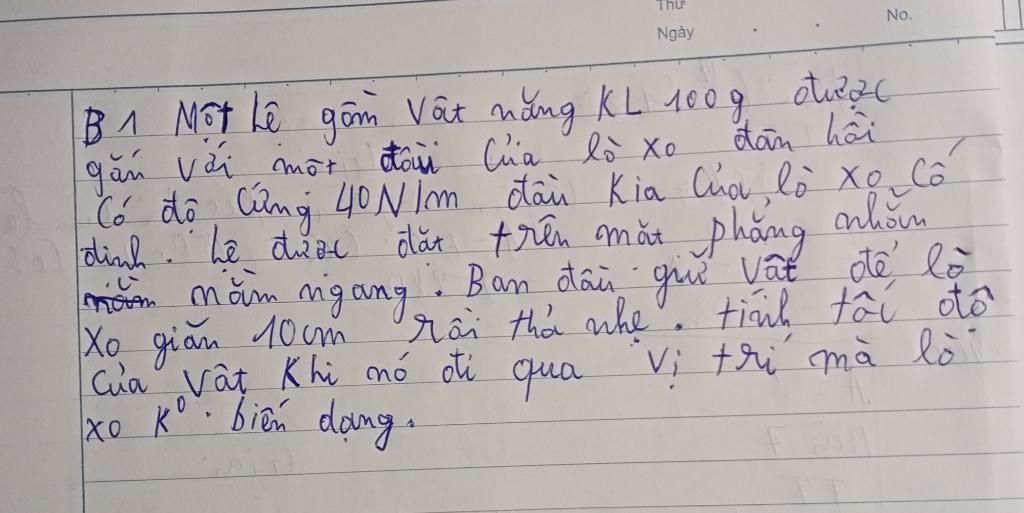 Thứ
Ngày
No.
B1 Một hệ gồm vật nặng KL 100g được
gắn với một đầu của lò xo đàn hồi
có độ cứng 40N/m đầu kia của lò xo cố
định. hệ được đặt trên mặt phẳng nhẵn
nằm ngang. Ban đầu giữ vật để lò
xo giãn 10cm rồi thả nhẹ. tính tốc độ
của vật khi nó đi qua vị trí mà lò
xo k⁰ biến dạng.